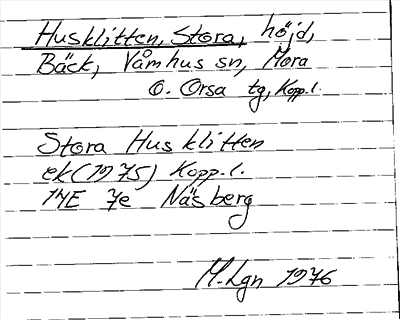 Husklitten, Stora, höjd,
Bäck, Våmhus sn, Mora
o. Orsa tg, Kopp.l.
Stora Husklitten
ek (1975) Kopp.l.
14E 7e Näsberg
M.Lgn 1976